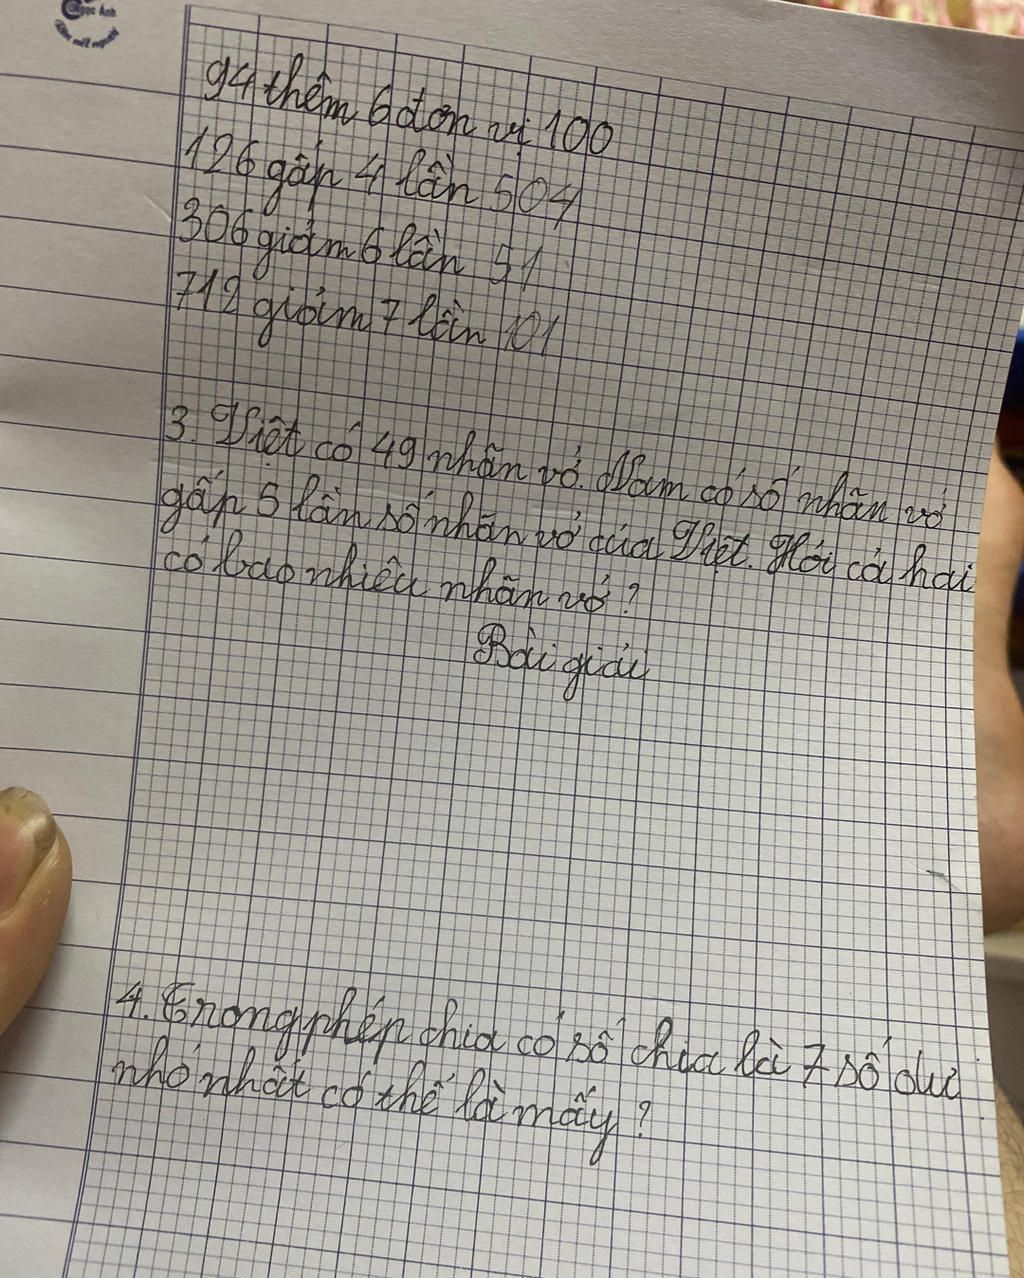 Ngọc Anh
94 thêm 6 đơn vị 100
126 gấp 4 lần 504
306 giảm 6 lần 51
712 giảm 7 lần 101
3. Việt có 49 nhãn vở. Nam có số nhãn vở
gấp 5 lần số nhãn vở của Việt. Hỏi cả hai
có bao nhiêu nhãn vở?
Bài giải
4. Trong phép chia có số chia là 7 số dư
nhỏ nhất có thể là mấy?